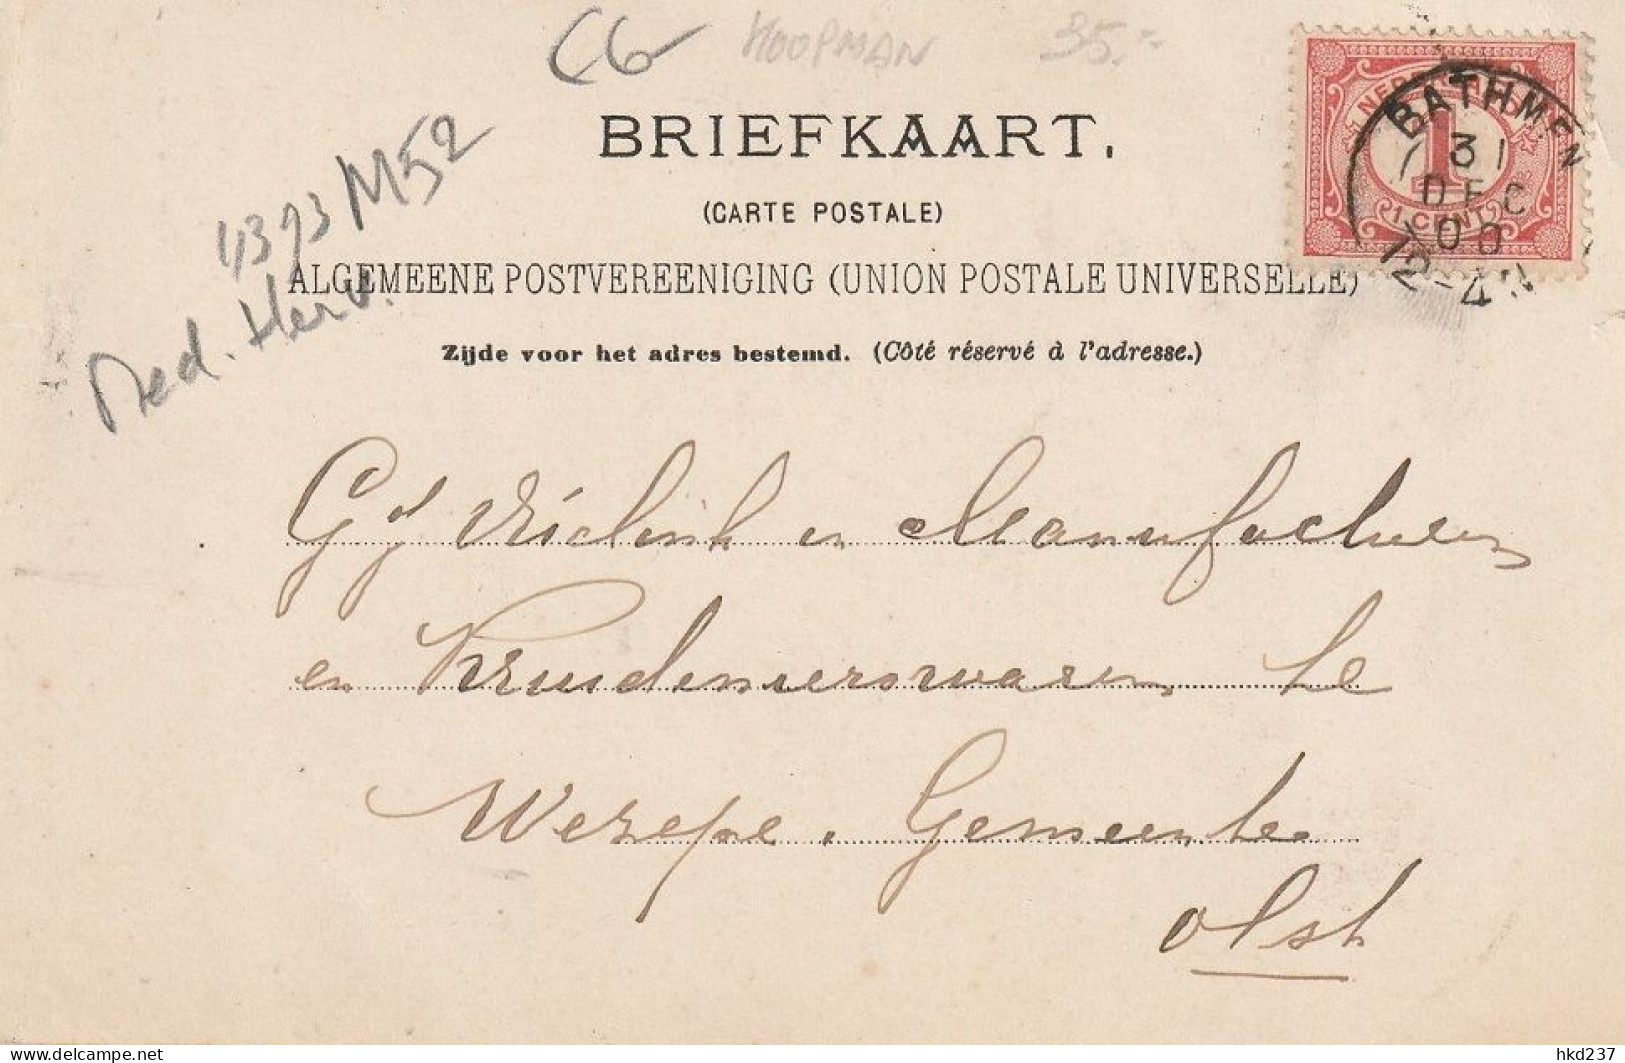 C6 KOOPMAN 35.-
BRIEFKAART.
(CARTE POSTALE)
ALGEMEENE POSTVEREENIGING (UNION POSTALE UNIVERSELLE)
Zijde voor het adres bestemd. (Côté réservé à l'adresse.)
4393 M52
Ned. Herv.
NEDERLAND
1
1 CENT
BATHMEN
31
DEC
00
12-4N
en Manufacturen
en Kruidenierswaren te
Wezepe. Gemeente
Olst
delcampe.net
hkd237